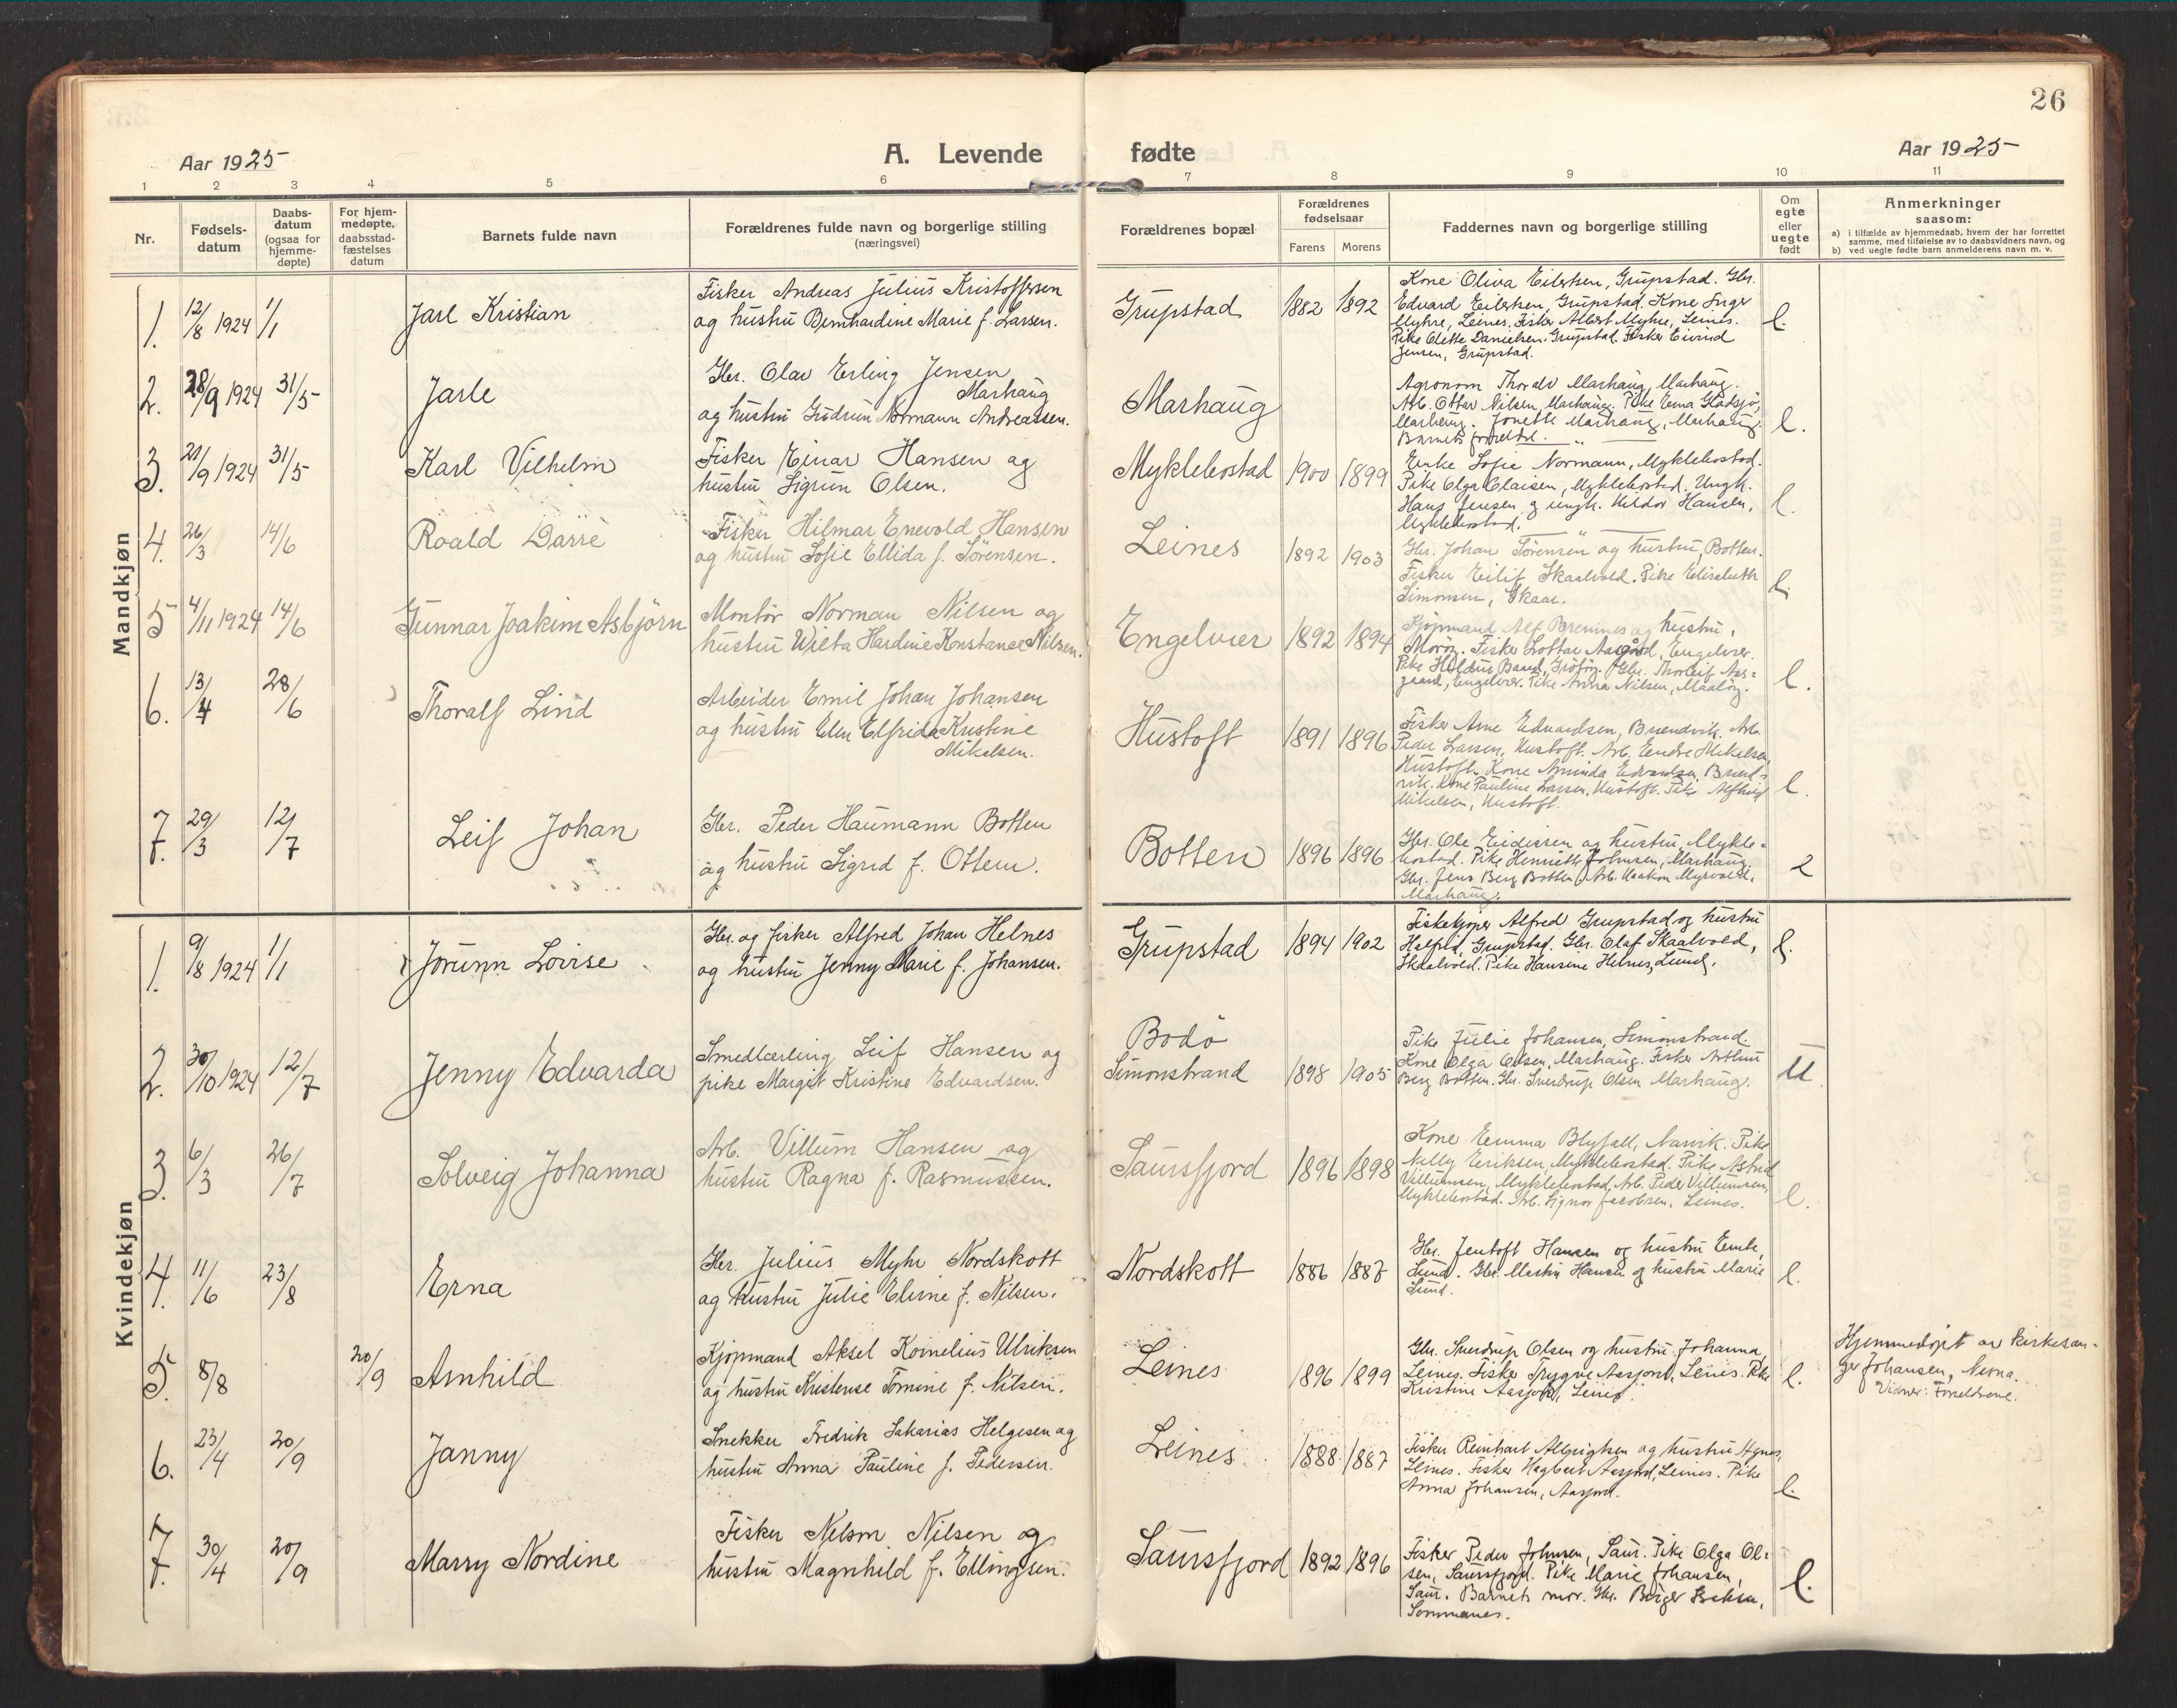 26
Aar 1925
A. Levende fødte
Aar 1925
1 2 3 4 5 6 7 8 9 10 11
Nr.
Fødsels-
datum
Daabs-
datum
(ogsaa for
hjemme-
døpte)
For hjem-
medøpte,
daabsstad-
fæstelses
datum
Barnets fulde navn
Forældrenes fulde navn og borgerlige stilling
(næringsvei)
Forældrenes bopæl
Forældrenes
fødselsaar
Farens
Morens
Faddernes navn og borgerlige stilling
Om
egte
eller
uegte
født
Anmerkninger
saasom:
a) i tilfælde av hjemmedaab, hvem der har forrettet
samme, med tilføielse av to daabsvidners navn, og
b) ved uegte fødte barn anmelderens navn m. v.
Mandkjøn
1. 12/8 1924 1/1 Jarl Kristian
Fisker Andreas Julius Kristoffersen
og hustru Bernhardine Marie f. Larsen.
Grupstad 1882 1892
Kone Oliva Eilertsen, Grupstad. Gbr.
Edvard Eilertsen, Grupstad. Kone Inger
Myhre, Leines. Fisker Albert Myhre, Leines.
Pike Olette Danielsen. Grupstad. Fisker Eivind
Jensen, Grupstad.
e.
2. 28/9 1924 31/5 Jarle
Gbr. Olav Erling Jensen
Marhaug
og hustru Gudrun Normann Andreassen.
Marhaug
Agronom Thoralv Marhaug, Marhaug.
Arb. Ottar Nilsen, Marhaug. Pike Erna Gladsjø,
Marhaug. Jonette Marhaug, Marhaug.
Barnets forældre.
e.
3. 21/9 1924 31/5 Karl Vilhelm
Fisker Einar Hansen og
hustru Sigrun Olsen.
Myklebostad 1900 1899
Enke Sofie Normann, Myklebostad.
Pike Olga Claisen, Myklebostad. Ungk.
Hans Jensen og ungk. Hildor Hansen,
Myklebostad.
e.
4. 26/3 14/6 Roald Darre
Fisker Hilmar Enevold Hansen
og hustru Sofie Ellida f. Sørensen.
Leines 1892 1903
Gbr. Johan Sørensen og hustru, Botten.
Fisker Eilif Skaalvold. Pike Elisabeth
Simonsen, Skaar.
e.
5 4/11 1924 14/6 Gunnar Joakim Asbjörn
Montör Norman Nilsen og
hustru Wilta Hardine Konstanse Nilsen.
Engelvær 1892 1894
Kjøpmand Alf Bremnes og hustru,
Fisker Lottar Aasgård, Engelvær.
Gbr. Thorleif Aas-
gaard, Engelvær. Pike Anna Nilsen, Maaløy.
e.
6. 13/4 28/6 Thoralf Lind
Arbeider Emil Johan Johansen
og hustru Elen Elfrida Kristine
Mikelsen.
Hustoft 1891 1896
Fisker Arne Edvardsen, Brændvik. Arb.
Peder Larsen, Hustoft. Arb. Endre Mikalsen,
Hustoft. Kone Aminda Edvardsen, Brænd-
vik. Kone Pauline Larsen, Hustoft. Pike Alfhild
Mikelsen, Hustoft.
e.
7. 29/3 12/7 Leif Johan
Gbr. Peder Haumann Botten
og hustru Sigrid f. Ottem.
Botten 1896 1896
Gbr. Ole Eidissen og hustru, Mykle-
bostad. Pike Henriette Johnsen, Marhaug.
Gbr. Jens Berg Botten. Arb. Haakon Myrvold,
Marhaug.
2
Kvindekjøn
1. 9/8 1924 1/1 Jorunn Lovise
Gbr. og fisker Alfred Johan Helnes
og hustru Jenny Marie f. Johansen.
Grupstad 1894 1902
Fiskekjøper Alfred Grupstad og hustru
Halfrid, Grupstad. Gbr. Olaf Skaalvold,
Skaalvold. Pike Hansine Helnes, Lund.
e.
2. 30/10 1924 12/7 Jenny Edvarda
Smedlærling Leif Hansen og
pike Margit Kristine Edvardsen.
Bodö
Simonstrand 1898 1905
Pike Julie Johansen, Simonstrand.
Kone Olga Olsen, Marhaug. Fisker Arthur
Berg Botten. Gbr. Sverdrup Olsen Marhaug.
U
3. 6/3 26/7 Solveig Johanna
Arb. Villum Hansen og
hustru Ragna f. Rasmussen.
Saursfjord 1896 1898
Kone Emma Blyfall, Narvik. Pike
Nelly Eriksen, Myklebostad. Pike Astrid
Villumsen, Myklebostad, Arb. Peder Villumsen,
Myklebostad. Arb. Signor Jacobsen, Leines.
e.
4. 11/6 23/8 Erna
Gbr. Julius Myhr Nordskott
og hustru Julie Elvine f. Nilsen.
Nordskott 1886 1887
Gbr. Jentoft Hansen og hustru Emte,
Lund. Gbr. Martin Hansen og hustru Marie
Lund.
e.
5. 8/8 20/9 Arnhild
Kjøpmand Aksel Kornelius Ulriksen
og hustru Kristense Tomine f. Nilsen.
Leines 1896 1899
Gbr. Sverdrup Olsen og hustru Johanna,
Leines. Fisker Trygve Aasjord, Leines. Pike
Kristine Aasjord, Leines.
e.
Hjemmedøpt av kirkesan-
ger Johansen, Nevna.
Vidner: Forældrene.
6. 23/4 20/9 Janny
Snekker Fredrik Sakarias Helgesen og
hustru Anna Pauline f. Pedersen.
Leines 1888 1887
Fisker Reinhart Albrigtsen og hustru Agnes,
Leines. Fisker Hagbart Aasjord, Leines. Pike
Anna Johansen, Aasjord.
e.
7. 30/4 20/9 Marry Nordine
Fisker Nelson Nilsen og
hustru Magnhild f. Ellingsen.
Saursfjord 1892 1896
Fisker Peder Johnsen, Saur. Pike Olga Ol-
sen, Saursfjord. Pike Marie Johansen,
Saur. Barnets mor. Gbr. Birger
Sommenes.
e.